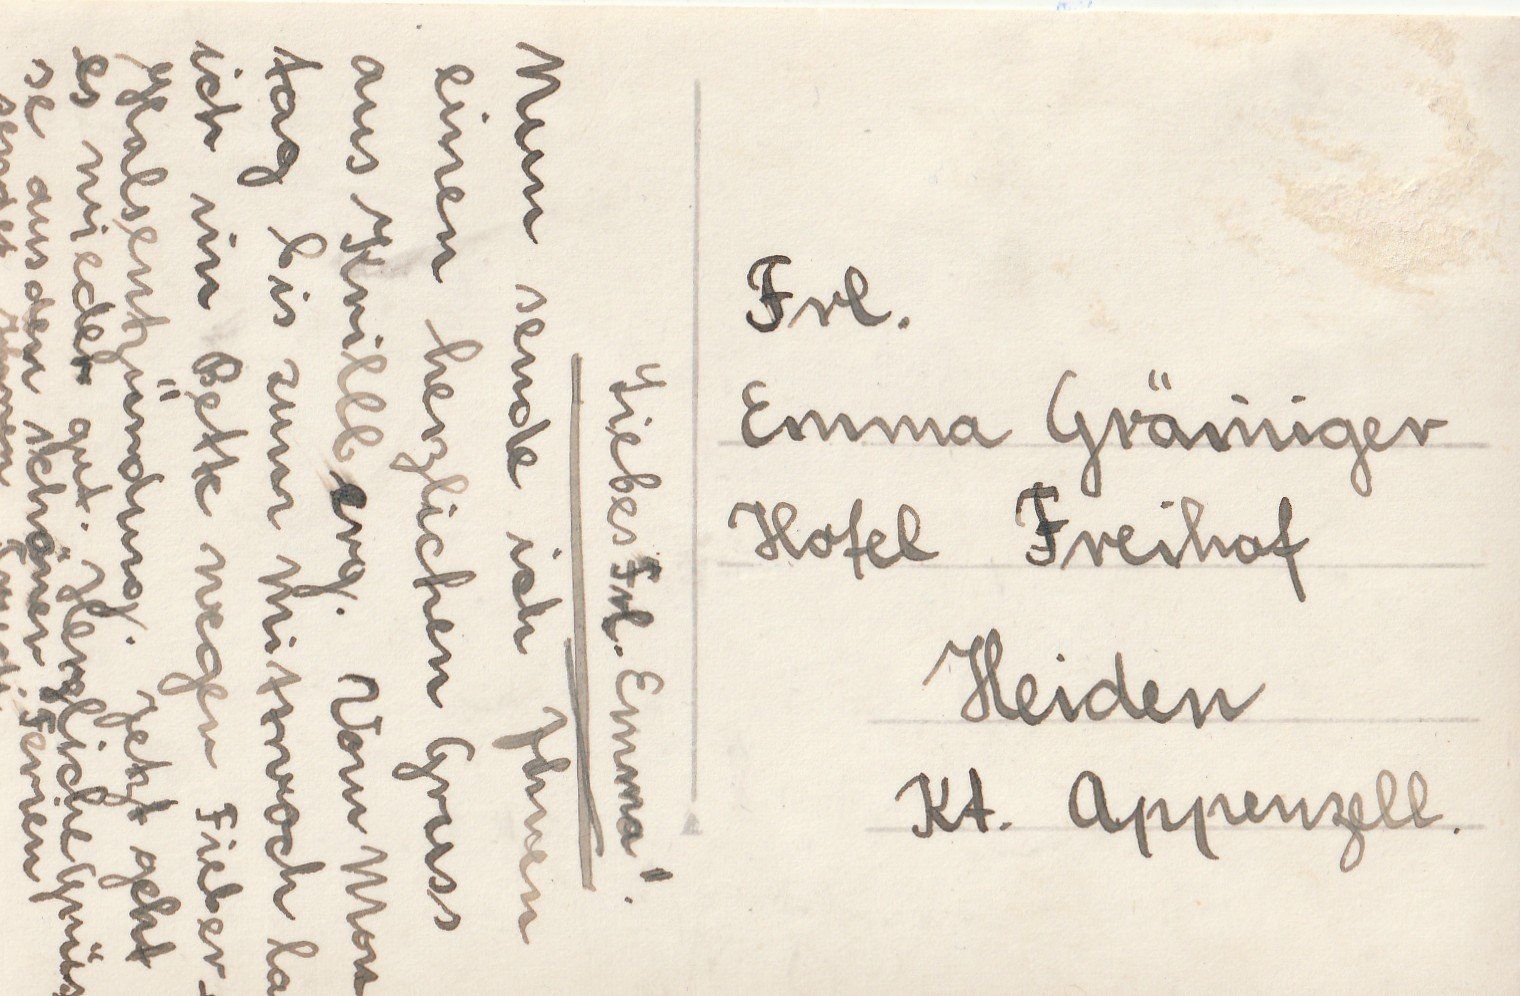 Liebes Frl. Emma!
Nun sende ich Ihnen
einen herzlichen Gruss
aus Krillberg. Vom Mon
tag bis zum Mittwoch la
ich im Bett wegen Fieber.
Halsentzündung. Jetzt geht
es wieder gut. Herzliche Grüs
se aus den schönen Ferien
sendet Ihnen
Frl.
Emma Gräminger
Hotel Freihof
Heiden
Kt. Appenzell.